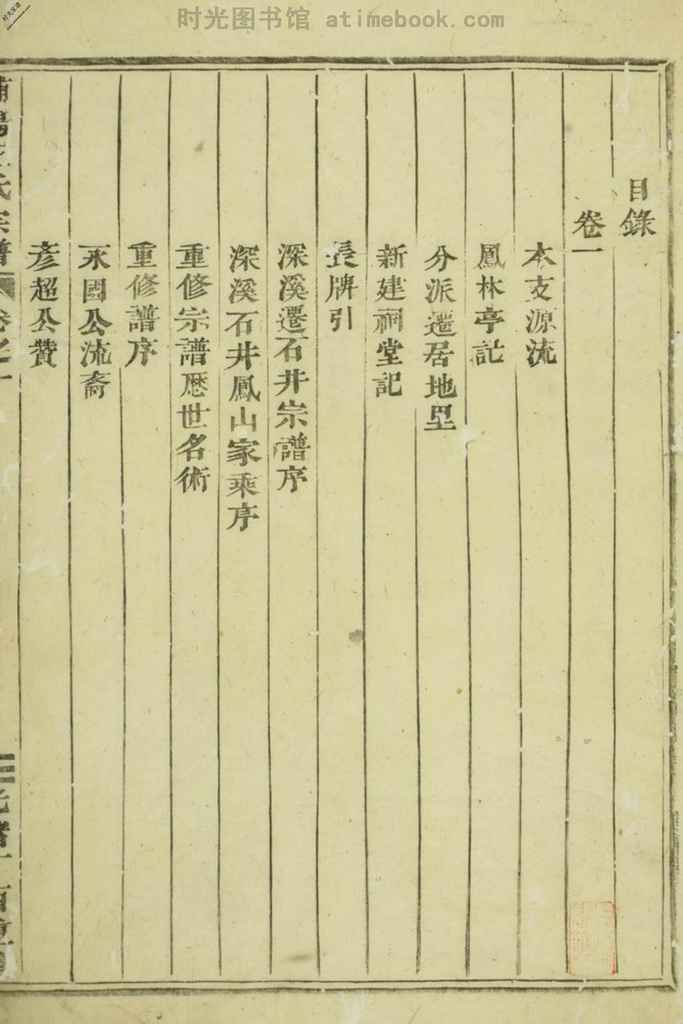 时光图书馆 atimebook.com
目錄
卷一
本支源流
鳳林亭記
分派遷居地里
新建祠堂記
長牌引
深溪遷石井宗譜序
深溪石井鳳山家乘序
重修宗譜歷世名術
重修譜序
永國公流裔
彥超公贊